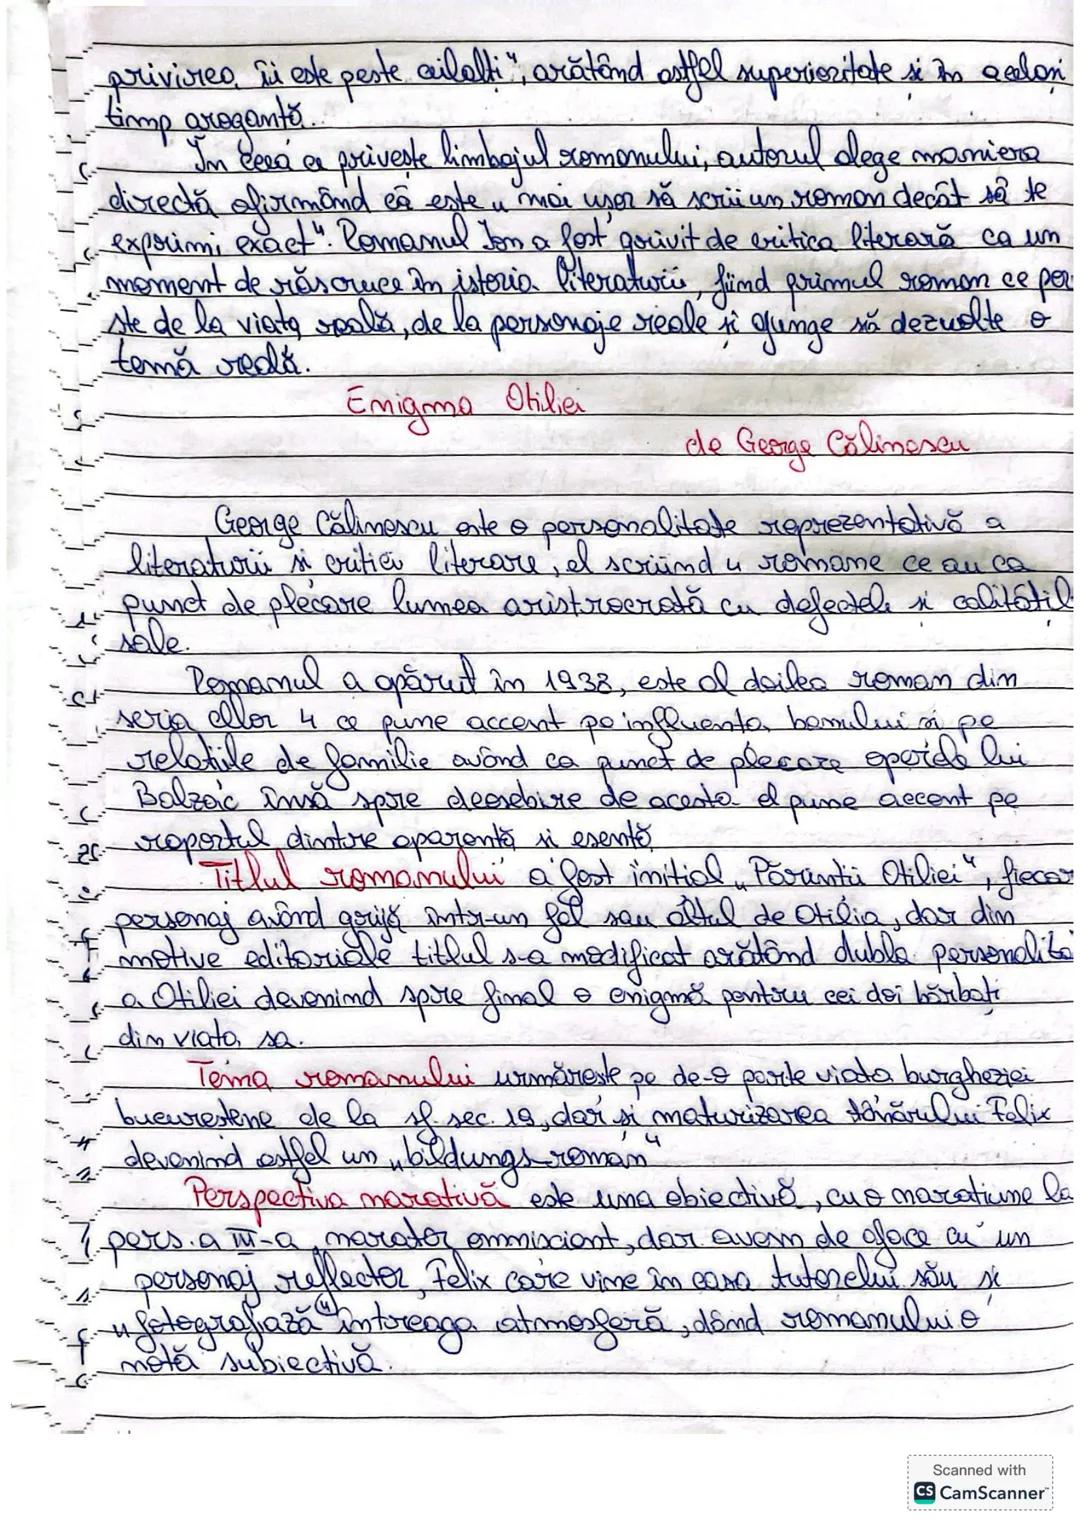 privirea îi este peste ceilalți", arătând astfel superioritate și în același
timp aroganță.
În ceea ce privește limbajul romanului, autorul alege maniera
directă afirmând că este „ mai ușor să scrii un roman decât să te
exprimi exact". Romanul Ion a fost privit de critica literară ca un
moment de răscruce în istoria literaturii, fiind primul roman ce por
ște de la viața reală, de la personaje reale și ajunge să dezvolte o
temă reală.
Enigma Otiliei
de George Călinescu
George Călinescu este o personalitate reprezentativă a
literaturii și criticii literare, el scriind 4 romane ce au ca
punct de plecare lumea aristrocrată cu defectele și calitățil
sale.
Romanul a apărut în 1938, este al doilea roman din
seria celor 4 ce pune accent pe influența banului și pe
relațiile de familie având ca punct de plecare operele lui
Balzac însă spre deosebire de acesta el pune accent pe
raportul dintre aparență și esență
Titlul romanului a fost inițial „Părinții Otiliei", fiecar
personaj având grijă într-un fel sau altul de Otilia, dar din
motive editoriale titlul s-a modificat arătând dubla personalita
a Otiliei devenind spre final o enigmă pentru cei doi bărbați
din viața sa.
Tema romanului urmărește pe de-o parte viața burgheziei
bucureștene de la sf. sec. 19, dar și maturizarea tânărului Felix
devenind astfel un „bildungs-roman"
Perspectiva narativă este una obiectivă, cu o narațiune la
pers. a III-a, narator omniscient, dar avem de aface cu un
personaj reflector, Felix care vine în casa tutorelui său și
„fotografiază" întreaga atmosferă, dând romanului o
notă subiectivă.
Scanned with
CS CamScanner